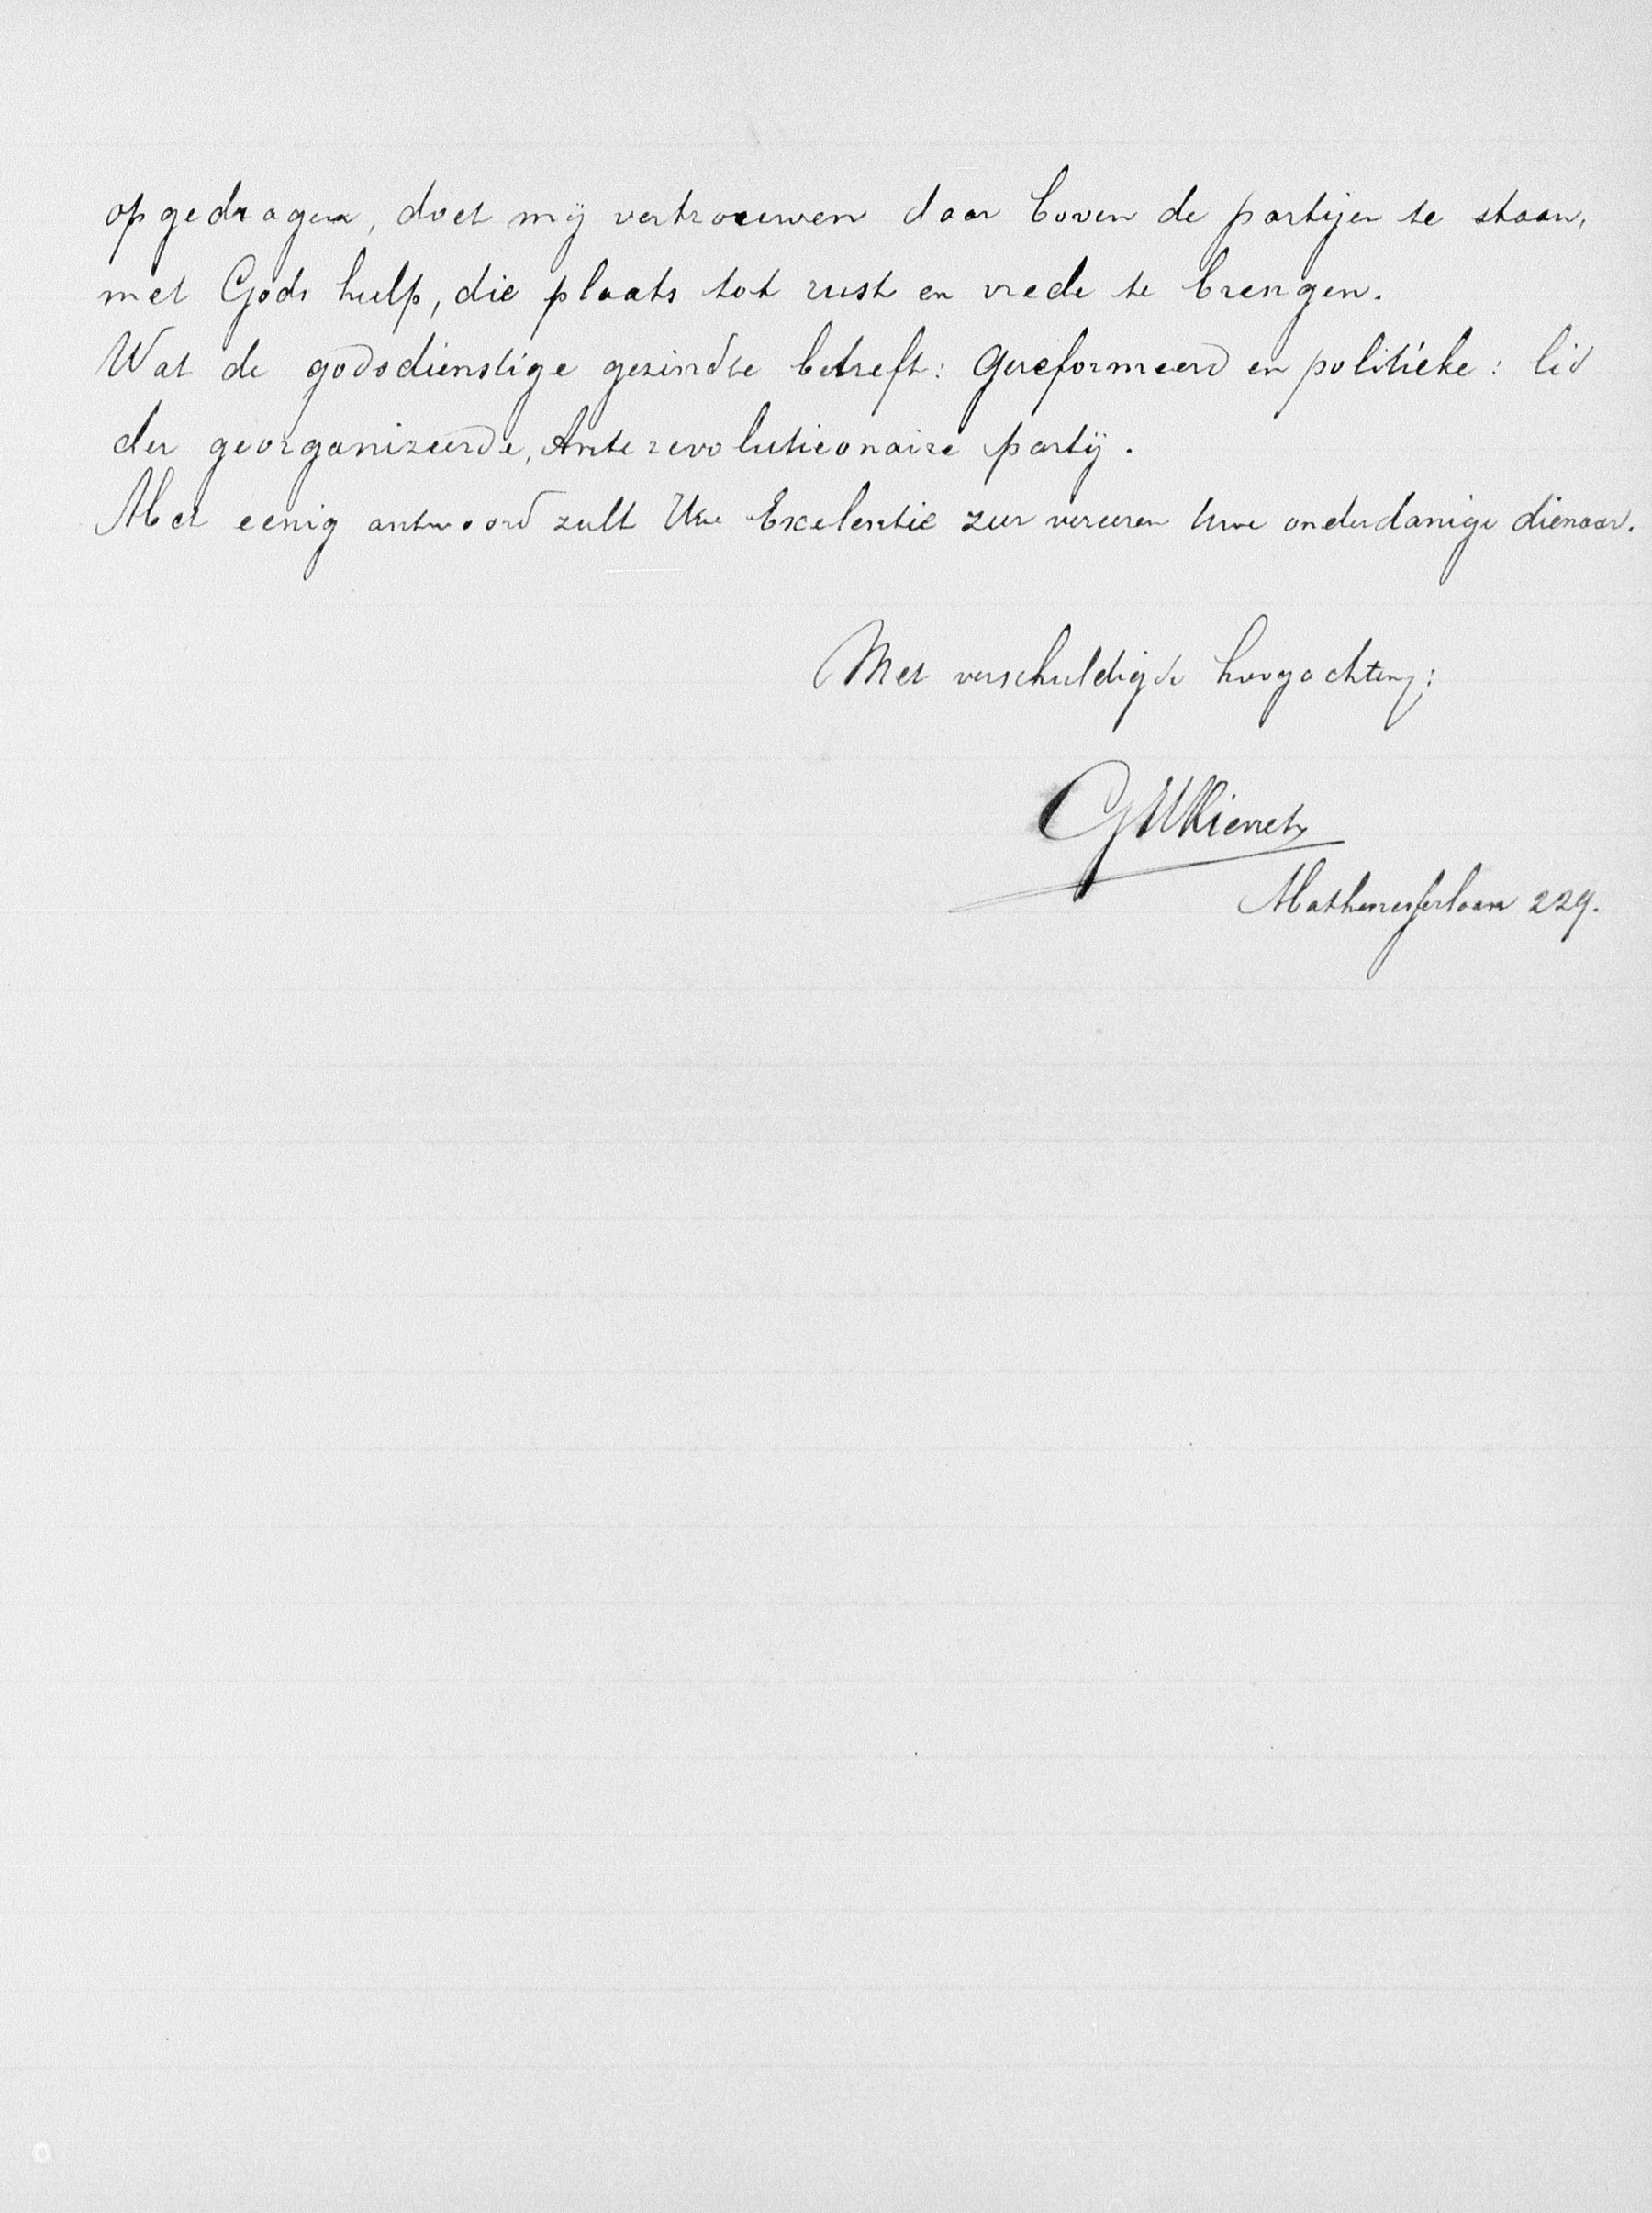 opgedragen, doet mij vertrouwen door boven de partijen te staan,
met Gods hulp, die plaats tot rust en vrede te brengen.
Wat de godsdienstige gezindte betreft: Gereformeerd en politieke: lid
der georganizeerde, Anterevolutionaire partij.
Met eenig antwoord zult Uwe Excelentie zeer vereeren Uwe onderdanige dienaar.
Met verschuldigde hoogachting:
Mathenesserlaan 229.